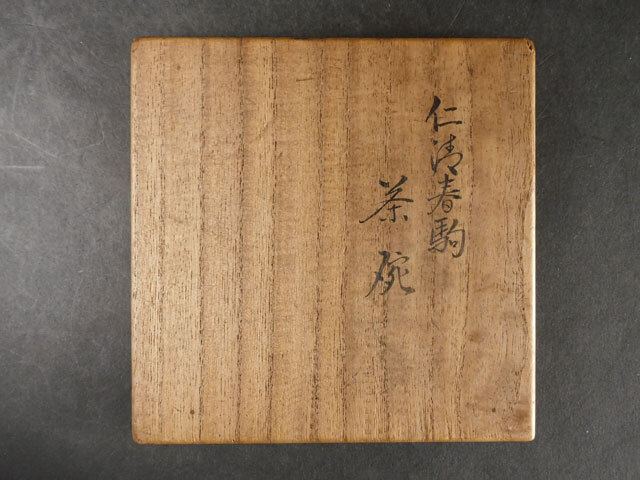 仁清春駒
茶碗